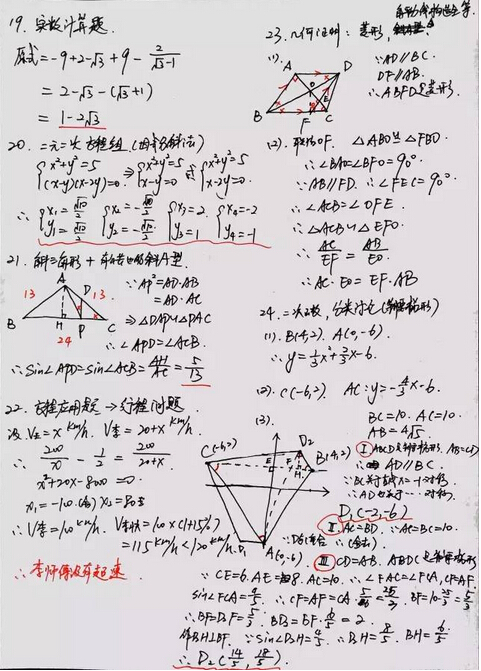 19. 实数计算题.
原式 = -9+2-√3+9 - 2/(√3-1)
= 2-√3-(√3+1)
= 1-2√3
20. 二元二次方程组 (因式分解法)
{x²+y²=5 (x-y)(x-2y)=0 ⇒ {x²+y²=5 x-y=0 或 {x²+y²=5 x-2y=0
∴ {x₁=√10/2 y₁=√10/2 {x₂=-√10/2 y₂=-√10/2 {x₃=2 y₃=1 {x₄=-2 y₄=-1
21. 解三角形 + A型
A D 13 13 B H P C 24
∵ AP²=AD·AB
=AD·AC
⇒ △DAP∽△PAC
∴ ∠APD=∠ACB
∴ sin∠APD=sin∠ACB=AH/AC=5/13
22. 方程应用题 → 行程问题
设 V王=x km/h, V李=20+x km/h
∴ 200/x - 1/2 = 200/(20+x)
x²+20x-8000=0
x₁=-100(舍) x₂=80
∴ V李=100 km/h V =100×(1+15%)
=115 km/h<120 km/h
∴ 李师傅没有超速.
23. 几何证明: 菱形,
(1).
A D O E B F C
∵ AD∥BC.
DF∥AB.
∴ ABFD是菱形
(2). 联结OF. △ABO≌△FBO.
∴ ∠BAO=∠BFO=90°
∵ AB∥FD. ∴ ∠FEC=90°.
∴ ∠ACB=∠OFE.
∴ △ACB∽△EFO.
∴ AC/EF = AB/EO.
∴ AC·EO=EF·AB
24. 二次函数, 分类讨论(等腰梯形)
(1). B(4,2). A(0,-6).
∴ y=1/3x²+2/3x-6.
(2). C(-6,2). AC: y=-4/3x-6.
BC=10. AC=10.
AB=4√5
(3).
C(-6,2) D₂ E F H B(4,2) D₁ A(0,-6)
Ⅰ ABCD是等腰梯形. AB=CD
∴ AD∥BC.
∵ BC关于x=-1对称.
∴ AD也关于…对称.
D₁(-2,-6)
Ⅱ. AC=BD. ∵ AC=BC=10.
∴ (舍去)
Ⅲ CD=AB. ABDC是等腰梯形
∵ CE=6. AE=8. AC=10. ∴ ∠FAC=∠FCA, CF=AF.
sin∠FCA=4/5. ∴ CF=AF=CA·5/6=25/3. BF=10-25/3=5/3
∴ BF=D₂F=5/3. BD₂=BF·6/5=2.
作BH⊥BF. ∵ sin∠D₂H=4/5. ∴ D₂H=8/5. BH=6/5
∴ D₂(14/5, 18/5)